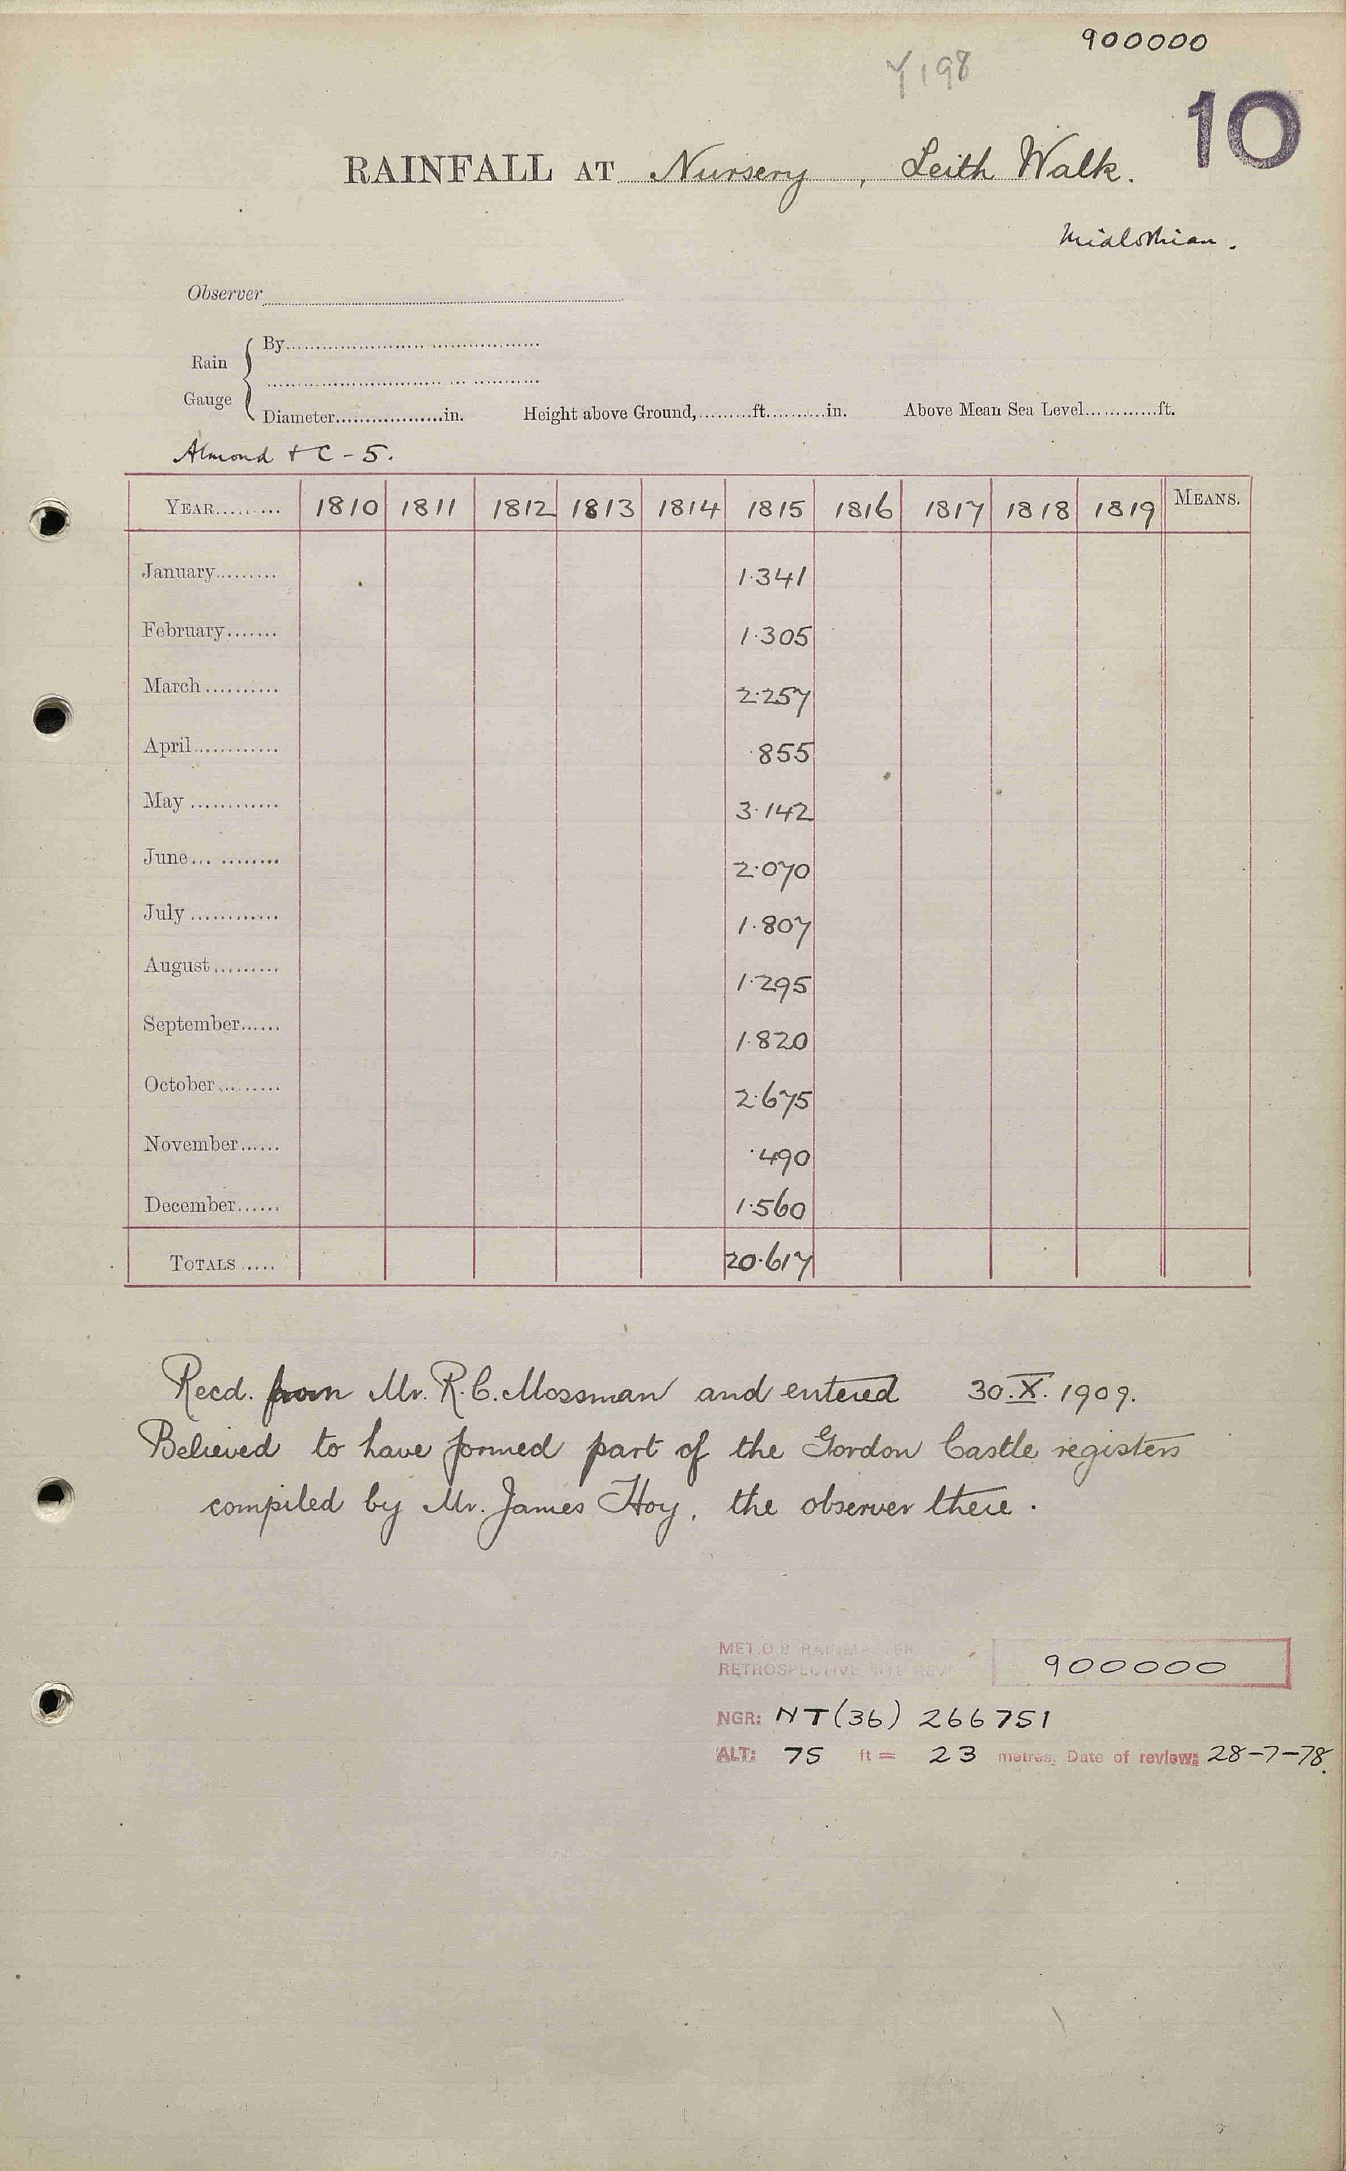 900000
Y198
10
RAINFALL AT Nursery, Leith Walk.
Midlothian.
Observer
Rain Gauge
By
Diameter in. Height above Ground, ft. in. Above Mean Sea Level ft.
Almond & C - 5.
YEAR 1810 1811 1812 1813 1814 1815 1816 1817 1818 1819 MEANS.
January 1.341
February 1.305
March 2.257
April .855
May 3.142
June 2.070
July 1.807
August 1.295
September 1.820
October 2.675
November .490
December 1.560
TOTALS 20.617
Recd. from Mr. R.C. Mossman and entered 30.X.1909.
Believed to have formed part of the Gordon Castle registers
compiled by Mr. James Hoy, the observer there.
MET.O.8
RETROSPECTIVE SITE REV 900000
NGR: NT(36) 266751
ALT: 75 ft = 23 metres. Date of review: 28-7-78.